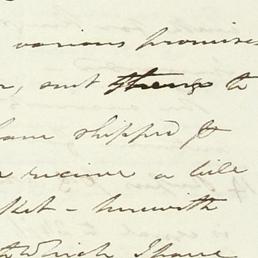 various promises
, sent them to
have shipped &
receive a bill
ket - herewith
which I have